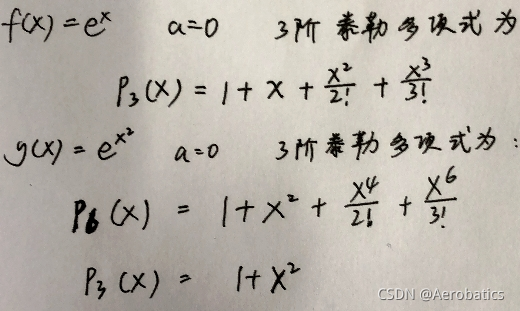 f(x) = eˣ a=0 3阶泰勒多项式为
P₃(x) = 1 + x + x²/2! + x³/3!
g(x) = e^(x²) a=0 3阶泰勒多项式为：
P₆(x) = 1 + x² + x⁴/2! + x⁶/3!
P₃(x) = 1 + x²
CSDN @Aerobatics